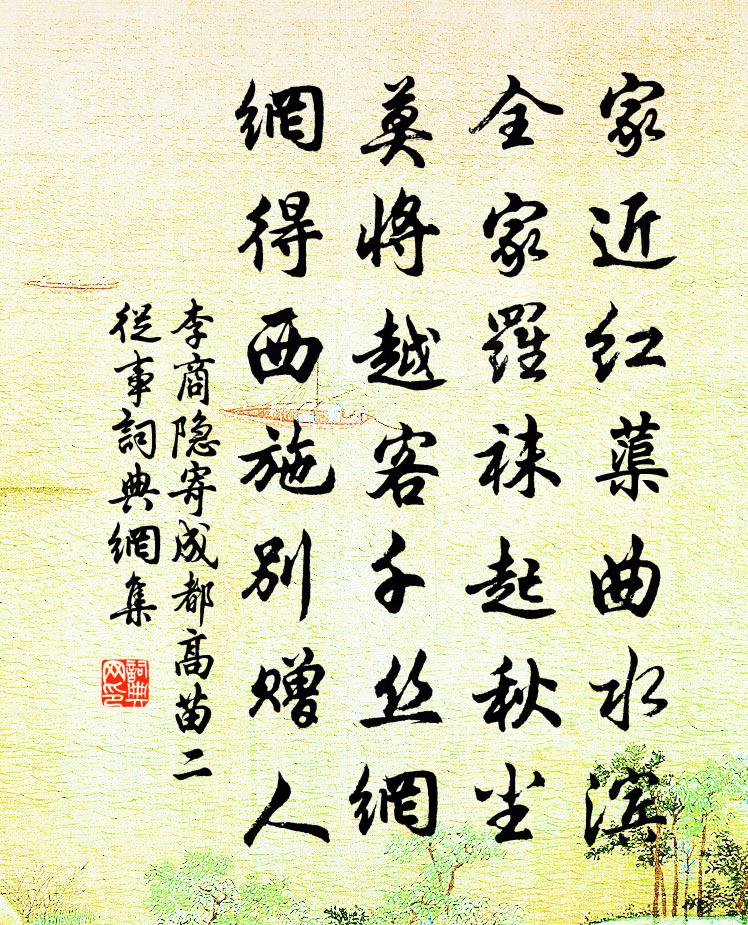 家近红蕖曲水滨
全家羅袜起秋尘
莫將越客千丝網
網得西施别赠人
李商隐寄成都高苗二
從事詞典網集
詞典
网印